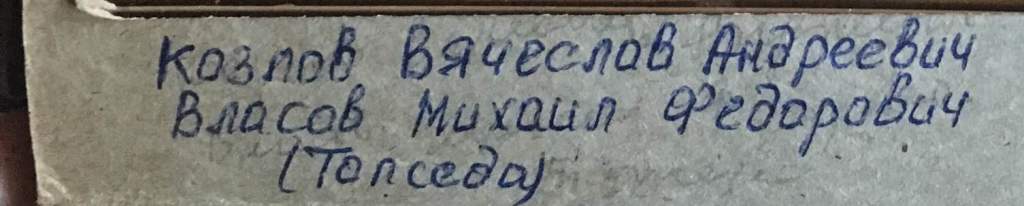 Козлов Вячеслав Андреевич
Власов Михаил Федорович
(Топседа)